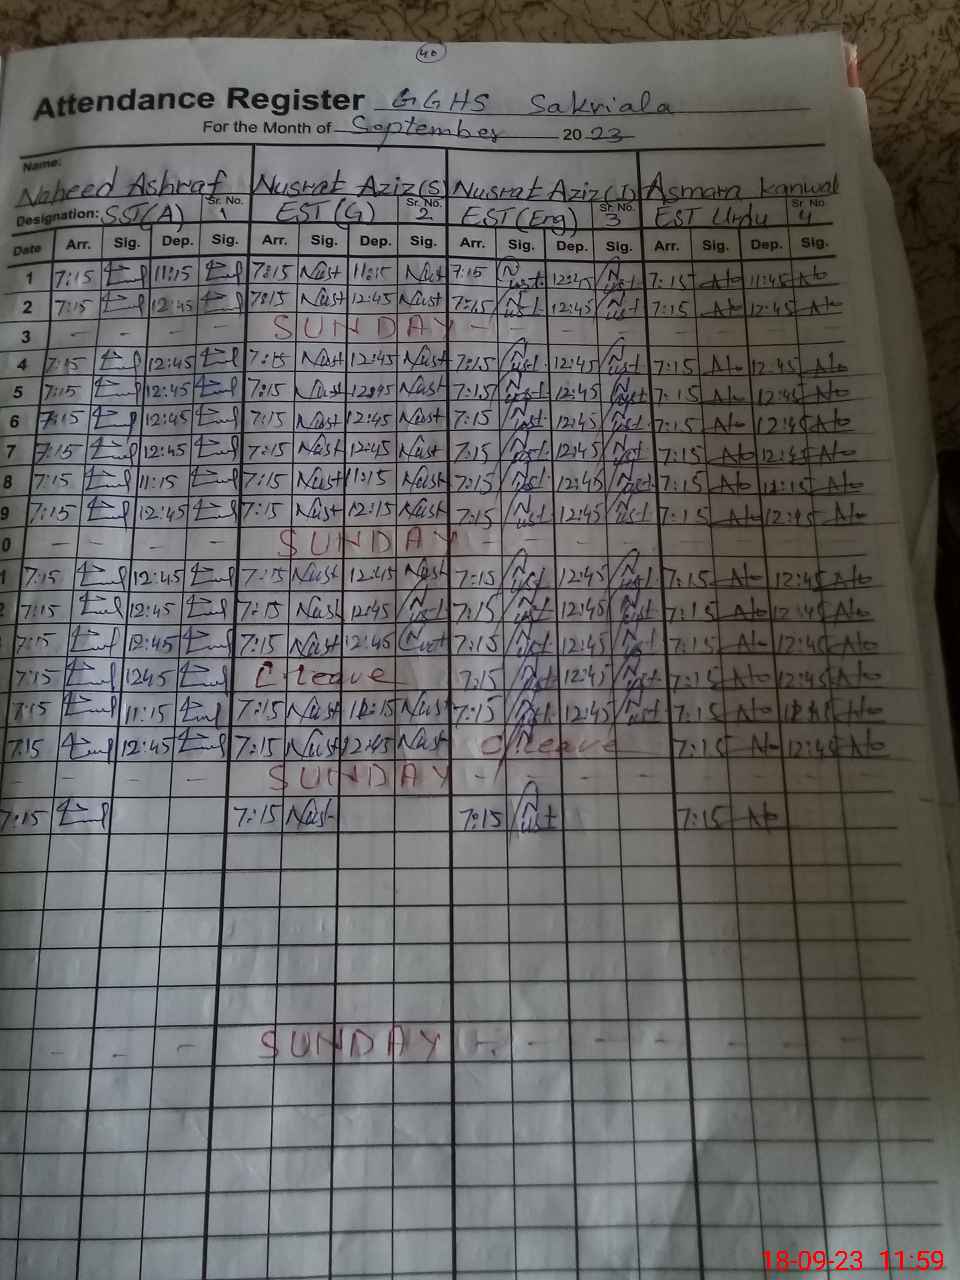 40
Attendance Register GGHS Sakriala
For the Month of September 2023
Name:
Naheed Ashraf Nusrat Aziz (S) Nusrat Aziz (J) Asmara Kanwal
Designation: SST(A) Sr. No. 1 EST(G) Sr. No. 2 EST(Eng) Sr. No. 3 EST Urdu Sr. No. 4
Date Arr. Sig. Dep. Sig. Arr. Sig. Dep. Sig. Arr. Sig. Dep. Sig. Arr. Sig. Dep. Sig.
1 7:15 11:15 7:15 Nust 11:15 Nust 7:15 Nust 12:45 Nust 7:15 11:45
2 7:15 12:45 7:15 Nust 12:45 Nust 7:15 Nust 12:45 Nust 7:15 12:45
3 - - - - SUNDAY - - - - - - - -
4 7:15 12:45 7:15 Nust 12:45 Nust 7:15 Nust 12:45 Nust 7:15 12:45
5 7:15 12:45 7:15 Nust 12:45 Nust 7:15 Nust 12:45 Nust 7:15 12:45
6 7:15 12:45 7:15 Nust 12:45 Nust 7:15 Nust 12:45 Nust 7:15 12:45
7 7:15 12:45 7:15 Nust 12:45 Nust 7:15 Nust 12:45 Nust 7:15 12:45
8 7:15 11:15 7:15 Nust 11:15 Nust 7:15 Nust 12:45 Nust 7:15
9 7:15 12:45 7:15 Nust 12:15 Nust 7:15 Nust 12:45 Nust 7:15 12:45
0 - - - - SUNDAY - - - - - - - -
1 7:15 12:45 7:15 Nust 12:45 Nust 7:15 Nust 12:45 Nust 7:15 12:45
2 7:15 12:45 7:15 Nust 12:45 Nust 7:15 Nust 12:45 Nust 7:15 12:45
7:15 12:45 7:15 Nust 12:45 Nust 7:15 Nust 12:45 Nust 7:15 12:45
7:15 1245 C leave 7:15 Nust 12:45 Nust 7:15 12:45
7:15 11:15 7:15 Nust 11:15 Nust 7:15 Nust 12:45 Nust 7:15
7:15 12:45 7:15 Nust 12:45 Nust C leave 7:15 12:45
- - - - SUNDAY - - - - - - - -
7:15 7:15 Nust 7:15 Nust 7:15
- - - SUNDAY - - - - - - - -
18-09-23 11:59